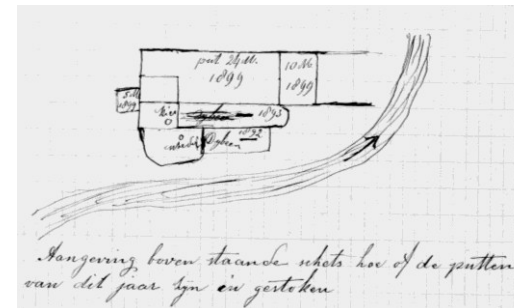 put 24 M.
1899
10 M
1899
5 M
1899
1893
1892
Aangeving boven staande schets hoe of de putten
van dit jaar zyn in gestoken